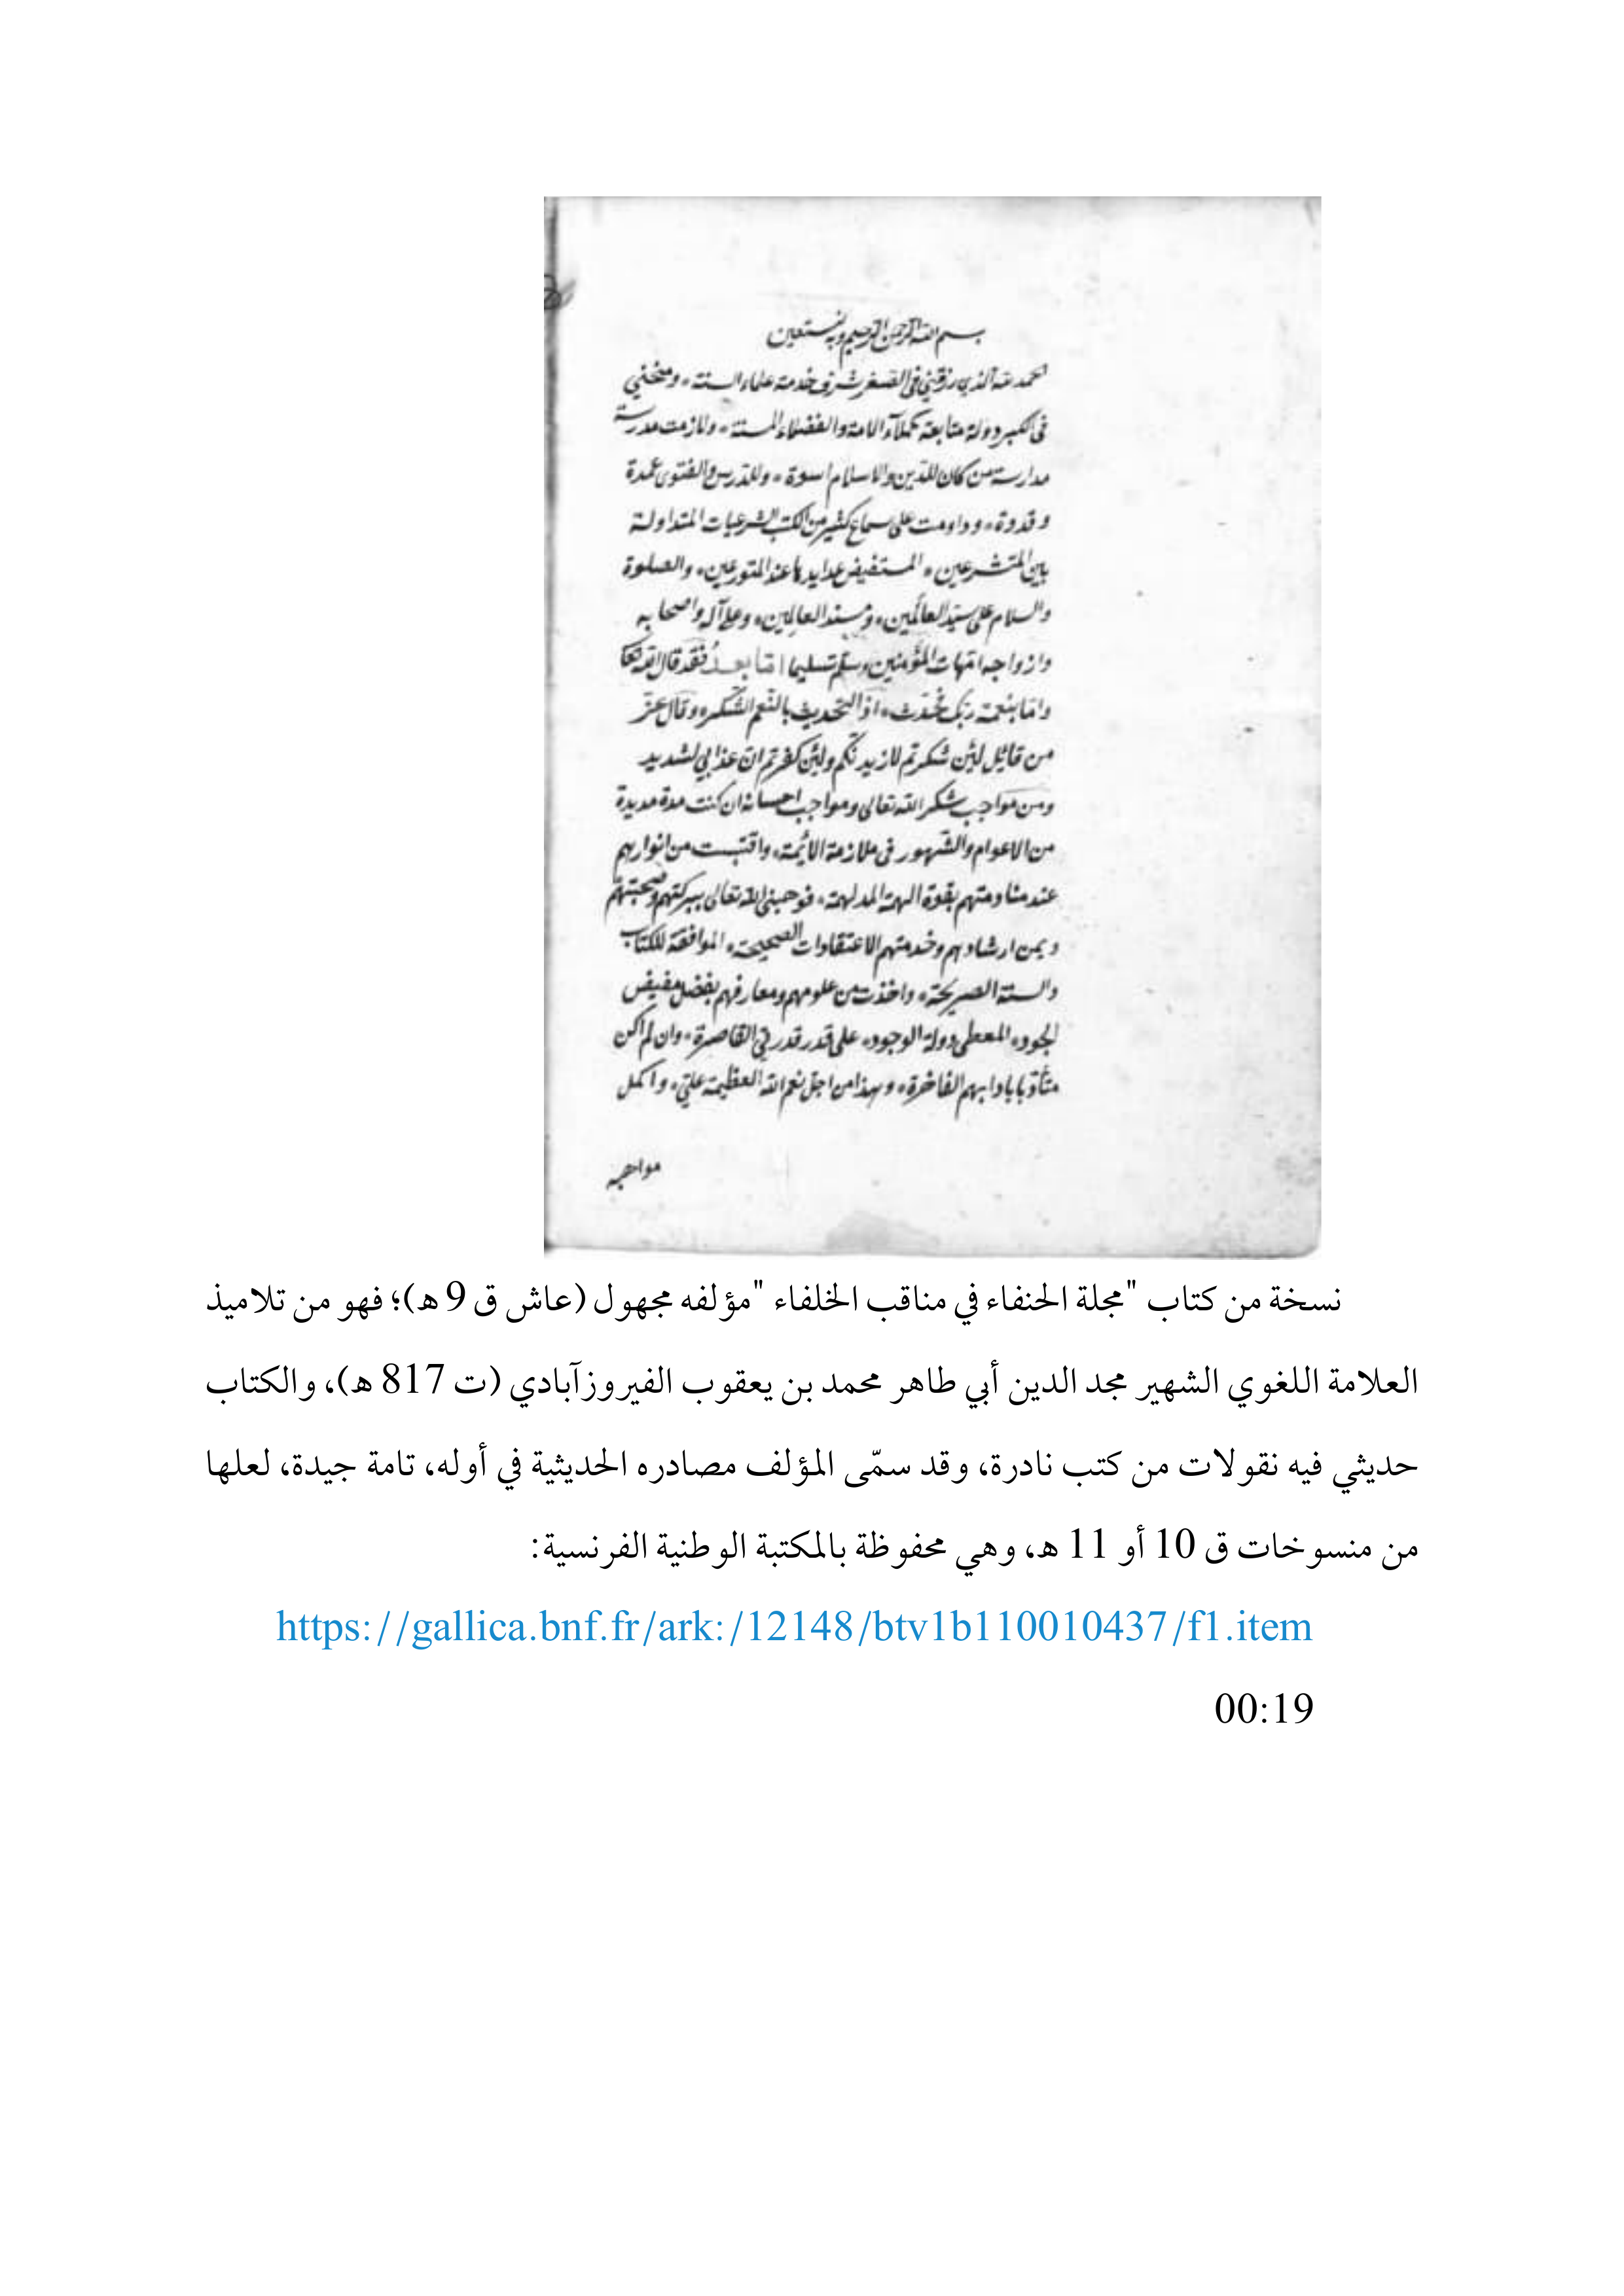 بسم الله الرحمن الرحيم وبه نستعين
الحمد لله الذي رزقني في الصغر شرف خدمة علماء السنة، ومنحني
في الكبر دولة متابعة كملاء الامة والفضلاء المسنة، ولازمت مدرسة
مدارسة من كان للدين والاسلام اسوة، وللدرس والفتوى عمدة
وقدوة، وداومت على سماع كثير من الكتب الشرعيات المتداولة
بين المتشرعين، المستفيض عند المتورعين، والصلوة
والسلام على سيد العالمين، وسند العالمين، وعلى آله واصحابه
وازواجه امهات المؤمنين، وسلم تسليما اما بعد فقد قال الله تعا
واما بنعمة ربك فحدث، اذ التحديث بالنعم الشكر، وقال عز
من قائل لئن شكرتم لازيدنكم ولئن كفرتم ان عذابي لشديد
ومن مواجب شكر الله تعالى ومواجب احسانه ان كنت مدة مديدة
من الاعوام والشهور في ملازمة الائمة، واقتبست من انوارهم
عند منادمتهم بقوة الهمة المدلهمة، فوهبني الله تعالى ببركتهم وصحبتهم
ويمن ارشادهم وخدمتهم الاعتقادات الصحيحة، الموافقة للكتاب
والسنة الصريحة، واخذت من علومهم ومعارفهم بفضل مفيض
الجود، المعطي دولة الوجود، على قدر قدرتي القاصرة، وان لم اكن
متأدبا بادابهم الفاخرة، وهذا من اجل نعم الله العظيمة علي، واكمل
مواهبه
نسخة من كتاب "مجلة الحنفاء في مناقب الخلفاء "مؤلفه مجهول (عاش ق 9 هـ)؛ فهو من تلاميذ
العلامة اللغوي الشهير مجد الدين أبي طاهر محمد بن يعقوب الفيروزآبادي (ت 817 هـ)، والكتاب
حديثي فيه نقولات من كتب نادرة، وقد سمّى المؤلف مصادره الحديثية في أوله، تامة جيدة، لعلها
من منسوخات ق 10 أو 11 هـ، وهي محفوظة بالمكتبة الوطنية الفرنسية:
https://gallica.bnf.fr/ark:/12148/btv1b110010437/f1.item
00:19